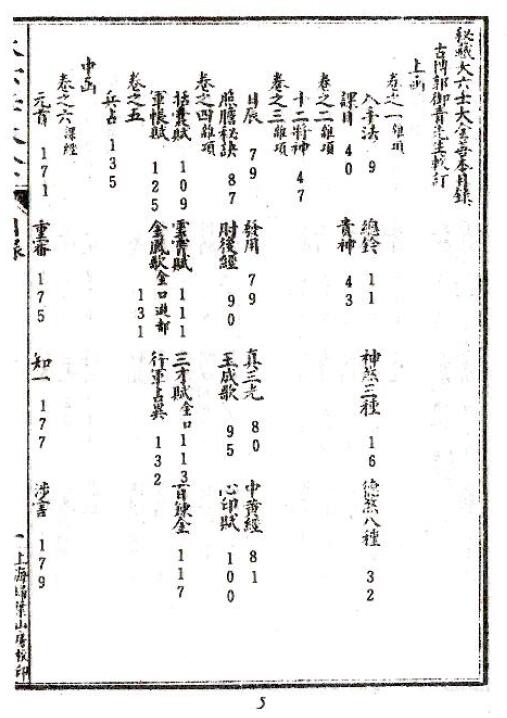 秘藏大六壬大全善本目錄
古閩郭御青先生較訂
上函
卷之一 雜項
入手法 9 總鈐 11 神煞三種 16 德煞八種 32
課目 40 貴神 43
卷之二 雜項
十二將神 47
卷之三 雜項
日辰 79 發用 79 真三光 80 中黃經 81
照膽秘訣 87 肘後經 90 玉成歌 95 心印賦 100
卷之四 雜項
括囊賦 109 雲霄賦 111 三才賦 金口 113 百鍊金 117
軍帳賦 125 金鳳歌 金口遊都 131 行軍占異 132
卷之五
兵占 135
中函
卷之六 課經
元首 171 重審 175 知一 177 涉害 179
目錄
上海掃葉山房校印
5